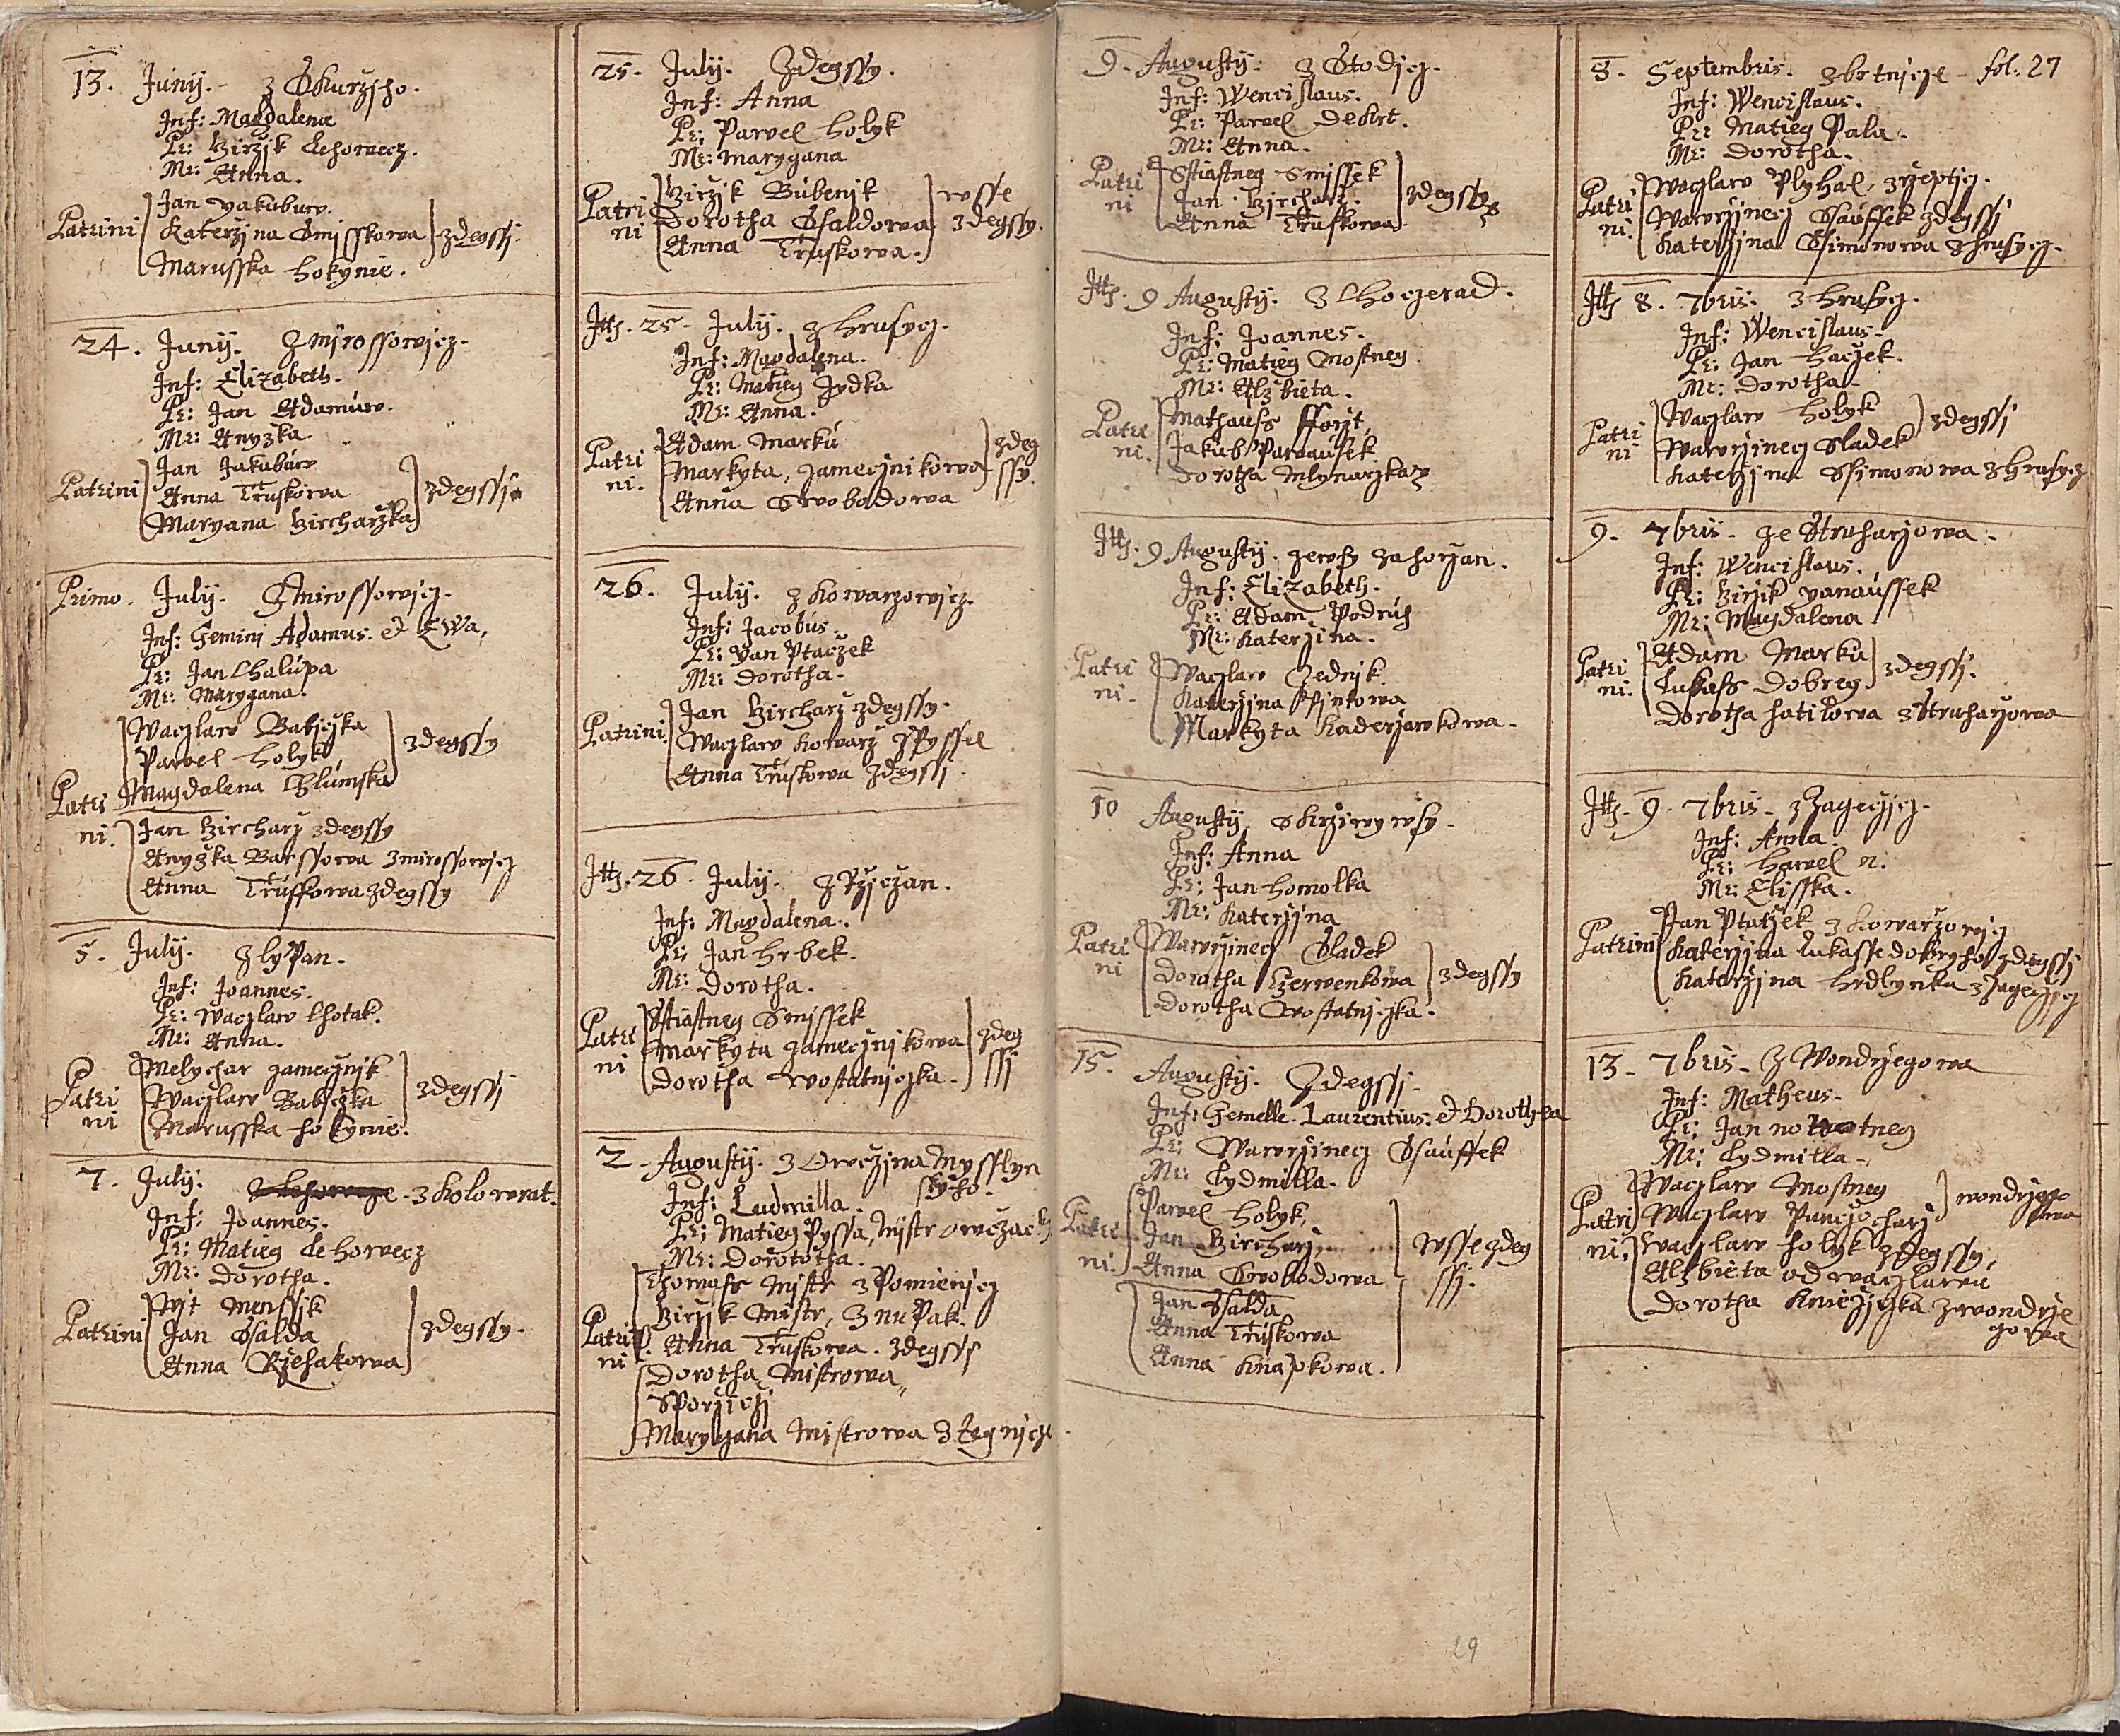 13. Junij. z Skurzjho.
Inf: Magdalena
Pr: Girzjk Lehowecz.
Mr: Anna.
Patrini
Jan yakubuw.
Katerzjna Smisskowa
Marusska hokynie.
zdegssj.
24. Junij. Z Mirossowjcz.
Inf: Elizabeth.
Pr: Jan Adamuw.
Mr: Anyzka.
Patrini
Jan Jakubuw
Anna Truskowa
Maryana Bircharzka
zdegssj
Primo. Julij. Z Mirossowjcz.
Inf: Gemini Adamus. et Ewa,
Pr: Jan Chalupa
Mr: Marygana.
Patrini.
Waczlaw Babiczka
Pawel holyk
Magdalena Chlumska
zdegssy
Jan Bircharz zdegssy
Anyzka Barssowa z mirossowjcz
Anna Truskowa zdegssy
5. Julij. Z lyPan.
Inf: Joannes.
Pr: Waczlaw Lhotak.
Mr: Anna.
Patrini
Melychar zamecznjk
Waczlaw Babiczka
Marusska hokynie.
zdegssj
7. Julij. z Kolowrat.
Inf: Joannes.
Pr: Matieg Lehowecz
Mr: Dorotha.
Patrini
Wjt Menssik
Jan Ssalda
Anna Rzehakowa
zdegssy.
25. Julij. Zdegssy.
Inf: Anna
Pr: Pawel holyk
Mr: Marygana
Patrini
Girzjk Bubenjk
Dorotha Ssaldowa
Anna Truskowa.
wsse
zdegssy.
Itt. 25. Julij. z hrusycz.
Inf: Magdalena.
Pr: Matieg Jydka
Mr: Anna.
Patrini.
Adam Marku
Markyta, zamecznikowa
Anna Swobodowa
zdeg
ssy.
26. Julij. z Kowarzowjcz.
Inf: Jacobus.
Pr: Yan Ptaczek
Mr: Dorotha.
Patrini
Jan Bircharz zdegssy.
Waczlaw Kowarz z Pyssel
Anna Truskowa Zdegssj.
Itt. 26 Julij. z Rzjczan.
Inf: Magdalena.
Pr: Jan hrbek.
Mr: Dorotha.
Patrini
Sstiastneg Smissek
Markyta zamecznjkowa
Dorotha Wostatnjczka.
zdeg
ssj
2. Augustij. z Owczjna Mysslyn
skyho.
Inf: Ludmilla.
Pr: Matieg Pyssa, Mistr owczacky
Mr: Dorototha.
Patrini
Thomass Mistr z Pomienicz
Girzjk Mistr, z nuPak.
P. Anna Truskowa. zdegssj
Dorotha Mistrowa
z Porzjczj
Marygana Mistrowa z
9. Augustij. z Stodjcz.
Inf: Wencislaus.
Pr: Pawel Dekrt.
Mr: Anna.
Patrini
Sstiastneg Smissek
Jan Bircharz.
Anna Truskowa
zdegssy
Itt. 9 Augustij. z Choczerad.
Inf: Joannes.
Pr: Matieg Mostneg.
Mr: Alzbieta.
Patrini.
Mathauss fforjt,
Jakub Parzausek.
Dorotha Mlynarzka
Itt. 9 Augustij. zewsy Zahorzan.
Inf: Elizabeth.
Pr: Adam Podruh
Mr: Katerzina.
Patrini.
Waczlaw Zednjk.
Katerzina
Markyta Kaderzawkowa.
10 Augustij. z Krziwywsy.
Inf: Anna
Pr: Jan homolka
Mr: Katerzjna
Patrini
Wawrzinecz Sladek
Dorotha Czerwenkowa
Dorotha Wostatnjczka.
zdegssy
15. Augustij. Zdegssj.
Inf: Gemelle. Laurentius. et Dorothea
Pr: Wawrzjnecz Ssauffek
Mr: Lydmilla.
Patrini.
Pawel holyk,
Jan Bircharz,
Anna Swobodowa
Jan Ssalda
Anna Truskowa
Anna Knapkowa.
wsse zdeg
ssj.
8. Septembris. z brtnicze - fol. 27
Inf: Wencislaus.
Pr: Matieg Pala.
Mr: Dorotha.
Patrini.
Waczlaw Plyhal,
Wawrzjnecz Ssauffek zdegssj
Katerzjna Ssimonowa z hrusycz.
Itt 8. 7bris. z hrusycz.
Inf: Wencislaus.
Pr: Jan haczek.
Mr: Dorotha.
Patrini
Waczlaw holyk
Wawrzinecz Sladek
zdegssj
Katerzina Ssimonowa z hrusycz
9. 7bris. ze Struharzowa.
Inf: Wencislaus.
Pr: Girzik yanaussek
Mr: Magdalena
Patrini.
Adam Marku
Lukass Dobreg
zdegssj.
Dorotha hatilowa z Struharzowa
Itt. 9. 7bris. z Zagecziicz.
Inf: Anna.
Pr: hawel n.
Mr: Elisska.
Patrini
Jan Ptatzek z Kowarzowicz
Katerzina Lukasse dobryho zdegssj
Katerzjna hrdlynka z Zageczjcz
13. 7bris. Z Wondrzegowa
Inf: Matheus.
Pr: Jan no tneg
Mr: Lydmilla.
Patrini.
Waczlaw Mostneg
Waczlaw Punczocharz
wondrzego
wa
Waczlaw holyk zdegssy
Alzbieta od waczlawu
Dorotha Kniezjczka z wondrze
gowa
29